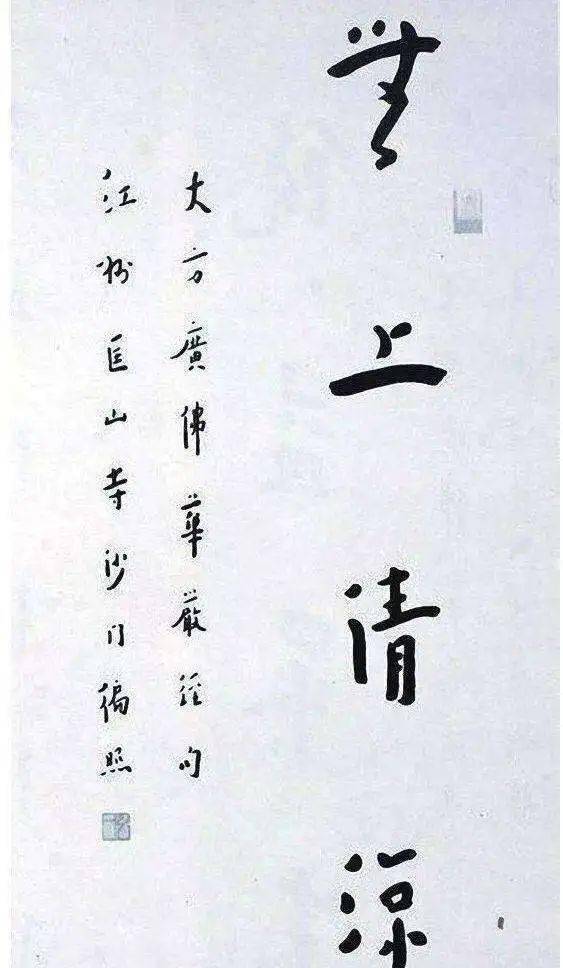 無上清涼
大方廣佛華嚴經句
江州匡山寺沙門徧照